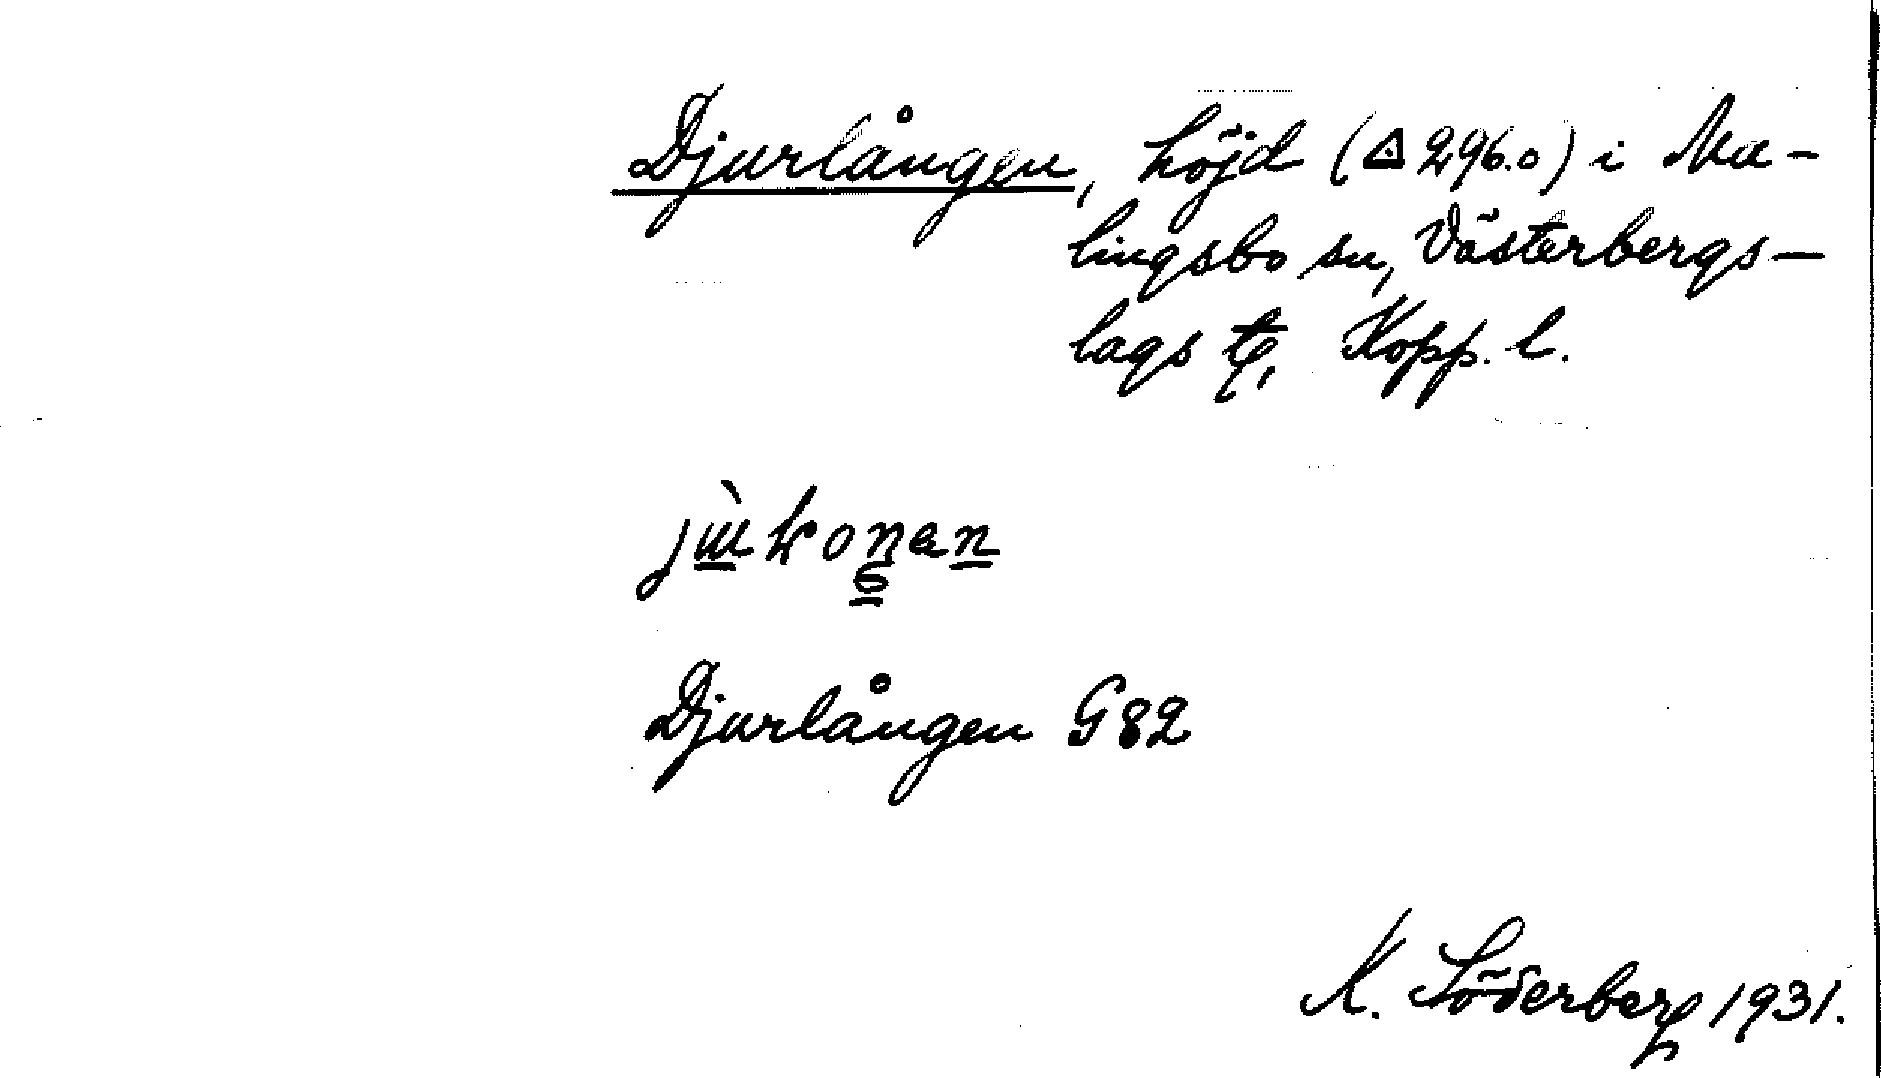 Djurlången, höjd (△ 296.0) i Ma-
lingsbo sn, Västerbergs-
lags tg, Kopp. l.
Djurlången G82
K. Söderberg 1931.